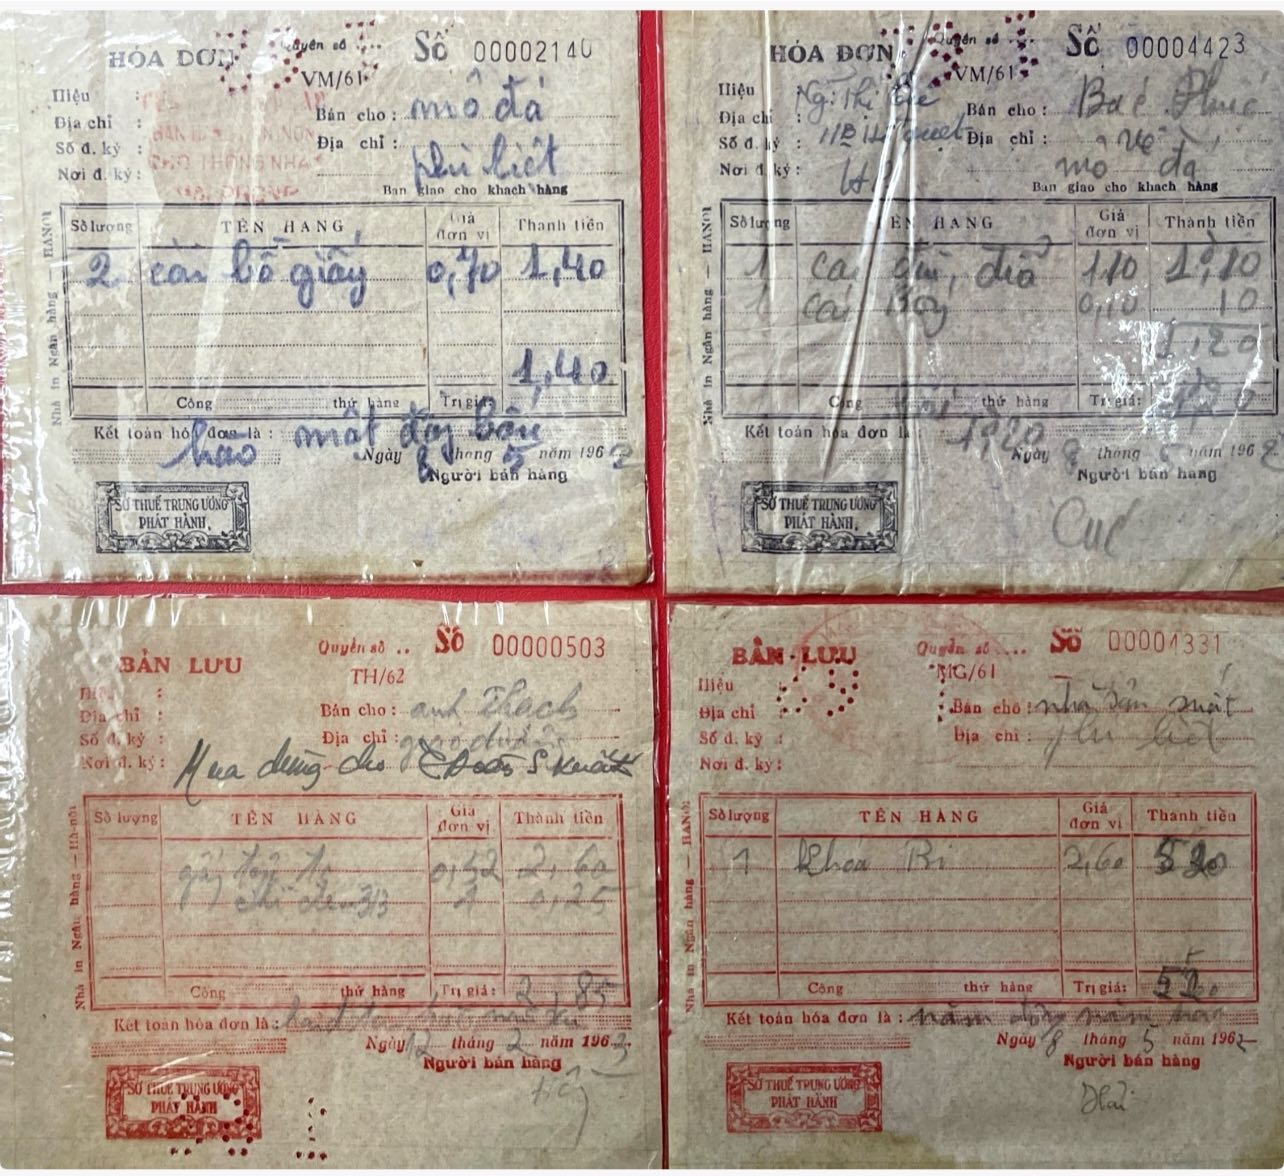 HÓA ĐƠN Quyển số .... Số 00002140
VM/61
Hiệu :
Bán cho : mỏ đá
Địa chỉ :
Địa chỉ : phi liệt
Số đ. ký :
Nơi đ. ký :
Ban giao cho khách hàng
Nhà in Ngân hàng — HANOI
Số lượng TÊN HÀNG Giá đơn vị Thành tiền
2 bồ giấy 0,70 1,40
1,40
Cộng thứ hàng Trị giá:
Kết toán hóa đơn là : một đồng bốn
hào
Ngày 8 tháng 5 năm 1962
Người bán hàng
SỞ THUẾ TRUNG ƯƠNG
PHÁT HÀNH
HÓA ĐƠN Quyển số .... Số 00004423
VM/61
Hiệu : Ng: Thị
Bán cho : Bác Phúc
Địa chỉ : 11B
Địa chỉ :
Số đ. ký :
mỏ đá
Nơi đ. ký : HP
Ban giao cho khách hàng
Nhà in Ngân hàng — HANOI
Số lượng TÊN HÀNG Giá đơn vị Thành tiền
1 cái 110 1,10
1 cái 0,10 10
1,20
Cộng thứ hàng Trị giá:
Kết toán hóa đơn là : 1đ20
Ngày 8 tháng năm 1962
Người bán hàng
Cúc
SỞ THUẾ TRUNG ƯƠNG
PHÁT HÀNH
BẢN LƯU Quyển số .. Số 00000503
TH/62
Hiệu :
Bán cho : anh Thạch
Địa chỉ :
Địa chỉ :
Số đ. ký :
Nơi đ. ký :
Mua dùng cho
Nhà in Ngân hàng — Hà-nội
Số lượng TÊN HÀNG Giá đơn vị Thành tiền
giấy 0,52 2,60
0,25
Cộng thứ hàng Trị giá: 2,85
Kết toán hóa đơn là :
Ngày 12 tháng 2 năm 1963
Người bán hàng
SỞ THUẾ TRUNG ƯƠNG
PHÁT HÀNH
BẢN LƯU Quyển số .... Số 00004331
MG/61
Hiệu :
Bán chô : nhà sản xuất
Địa chỉ :
Địa chỉ : phi liệt
Số đ. ký :
Nơi đ. ký :
Nhà in Ngân hàng — HANOI
Số lượng TÊN HÀNG Giá đơn vị Thành tiền
1 khóa Bi 2,60 520
Cộng thứ hàng Trị giá:
Kết toán hóa đơn là : năm đồng năm hào
Ngày 8 tháng 5 năm 1962
Người bán hàng
Hải
SỞ THUẾ TRUNG ƯƠNG
PHÁT HÀNH